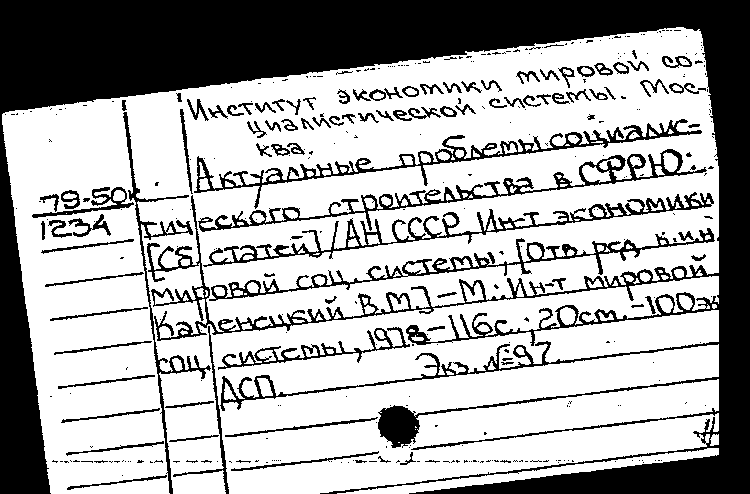 Институт экономики мировой со-
циалистической системы. Мос-
ква.
Актуальные проблемы социалис=
79-50к
1234
тического строительства в СФРЮ:
[Сб. статей] / АН СССР, Ин-т экономики
мировой соц. системы; [Отв. ред. к.и.н.
Каменецкий В.М.] - М.: Ин-т мировой
соц. системы, 1978 - 116с.; 20см. - 100эк
ДСП. Экз. №=97.